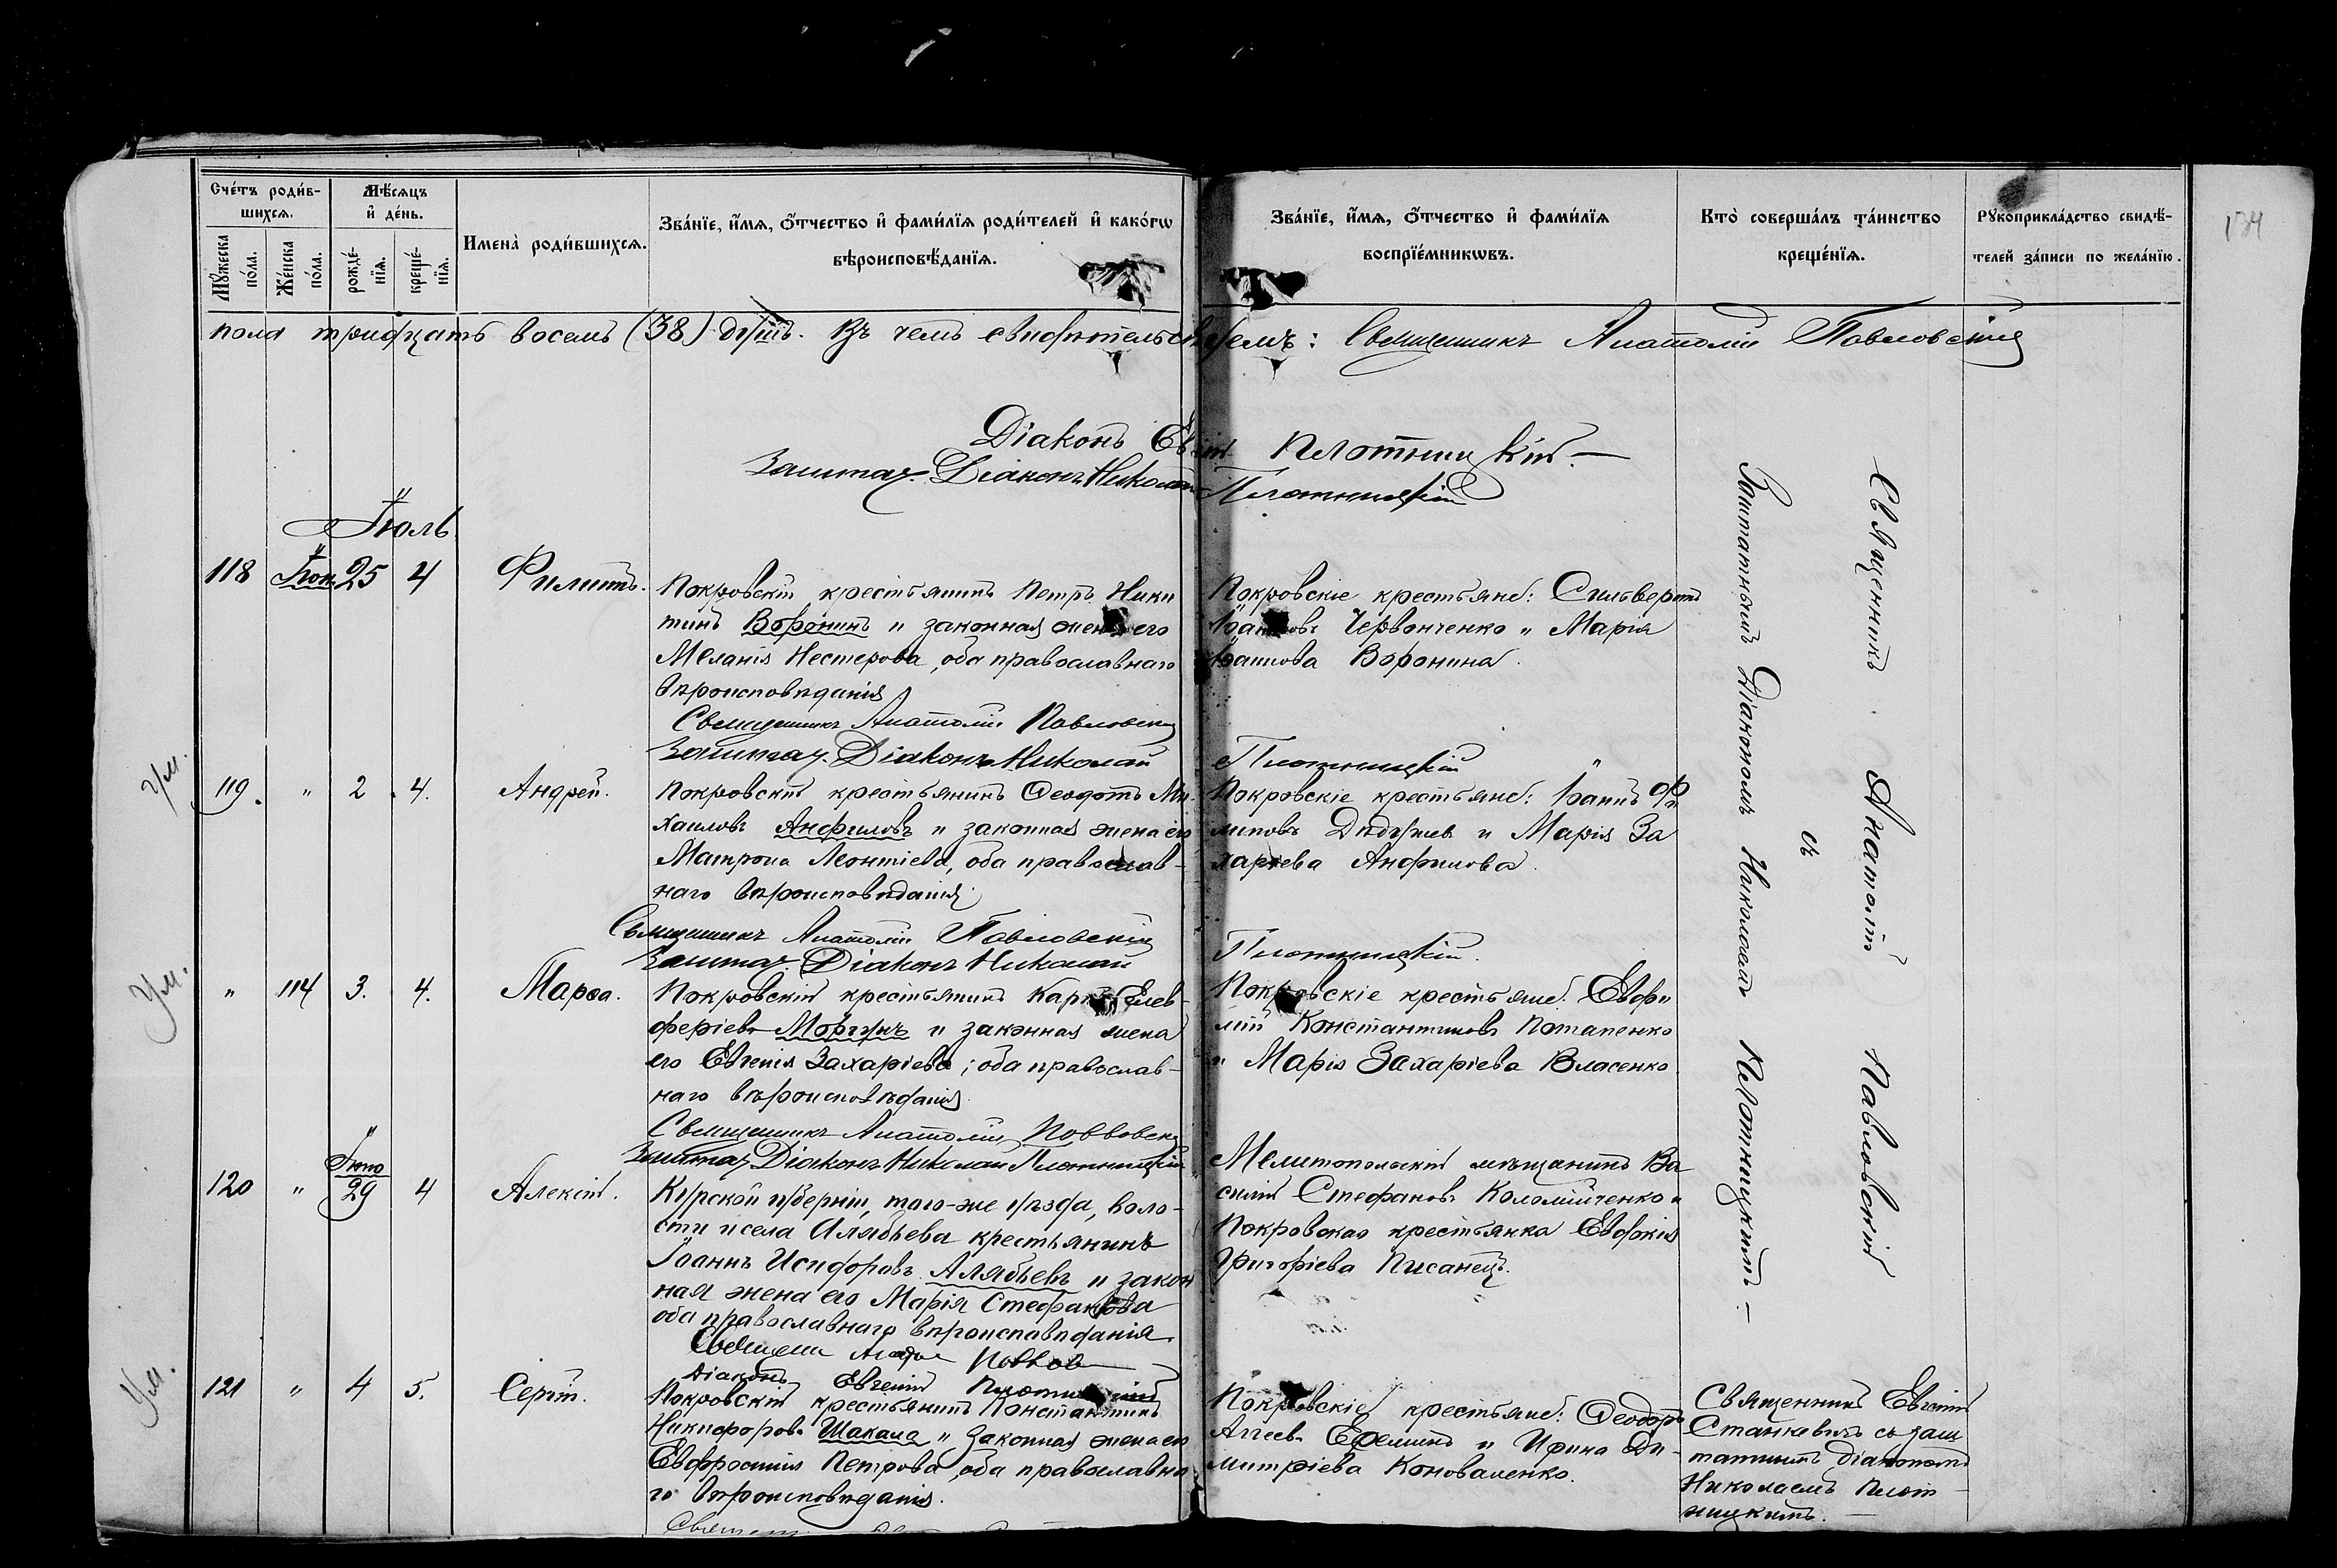 Счетъ родив-
шихся.
Мѣсяцъ
и день.
Мужеска
пола.
Женска
пола.
рожде-
нія.
креще-
нія.
Имена родившихся.
Званіе, имя, отчество и фамилія родителей и какого
вѣроисповѣданія.
Званіе, имя, отчество и фамилія
воспріемниковъ.
Кто совершалъ таинство
крещенія.
Рукоприкладство свидѣ-
телей записи по желанію.
134
пола тридцать восемь (38) душъ. Въ чемъ свидѣтельствуемъ: Священникъ Анатолій Павловскій
Діаконъ Плотницкій
Заштат. Діаконъ Николай Плотницкій
Іюль
118 Іюн. 25 4 Филиппъ.
Покровскій крестьянинъ Петръ Ники
тинъ Воронинъ и законная жена его
Меланія Нестерова, оба православнаго
вѣроисповѣданія
Священникъ Анатолій Павловскій
Заштат. Діаконъ Николай Плотницкій
Покровскіе крестьяне: Сильвертъ
Іоанновъ Червонченко и Марія
Іоаннова Воронина.
Ум.
119. " 2 4. Андрей.
Покровскій крестьянинъ Ѳеодотъ Ми-
хаиловъ Анфиловъ и законная жена его
Матрона Леонтіева, оба православ-
наго вѣроисповѣданія
Священникъ Анатолій Павловскій
Заштат. Діаконъ Николай Плотницкій.
Покровскіе крестьяне: Іоаннъ Фи
липовъ и Марія За
харіева Анфилова.
Ум.
" 114 3. 4. Марѳа.
Покровскій крестьянинъ Карпъ Елев-
феріевъ Моргунъ и законная жена
его Евгенія Захаріева; оба православ-
наго вѣроисповѣданія.
Священникъ Анатолій Павловскій
Заштат. Діаконъ Николай Плотницкій
Покровскіе крестьяне: Евфи
мій Константиновъ Потапенко
и Марія Захаріева Власенко
120 " Іюн 29 4 Алексій.
Курской губерніи, того-же уѣзда, воло-
сти и села Алябьева крестьянинъ
Іоаннъ Исидоровъ Алябьевъ и закон
ная жена его Марія Стефанова
оба православнаго вѣроисповѣданія.
Діаконъ Евгеній Плотницкій
Мелитопольскій мѣщанинъ Ва
силій Стефановъ Коломійченко и
Покровская крестьянка Евдокія
Григоріева Писанецъ.
Священникъ Анатолій Павловскій
съ
Заштатнымъ Діакономъ Николаемъ Плотницкимъ
Ум.
121 " 4 5. Сергій.
Покровскій крестьянинъ Константинъ
Никифоровъ Шакала и законная жена его
Евфросинія Петрова, оба православна
го вѣроисповѣданія.
Покровскіе крестьяне: Ѳеодоръ
Аггеевъ и Ирина Ди-
митріева Коноваленко.
Священникъ Евгеній
Станкевичъ съ заш
татнымъ діакономъ
Николаемъ Плот-
ницкимъ.